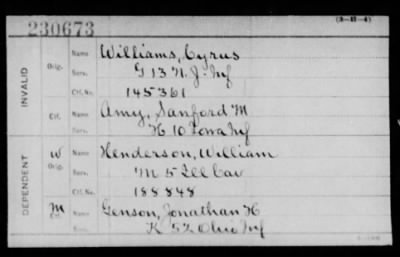 230673
(3-11-4)
INVALID
Orig. Name Williams, Cyrus
Serv. G 13 N.J. Inf
Ctf. No. 145361
Ctf. Name Amy, Sanford M
Serv. H 10 Iowa Inf
DEPENDENT
W Orig. Name Henderson, William
Serv. M 5 Ill Cav
Ctf. No. 188848
M Ctf. Name Genson, Jonathan H
Serv. K 52 Ohio Inf